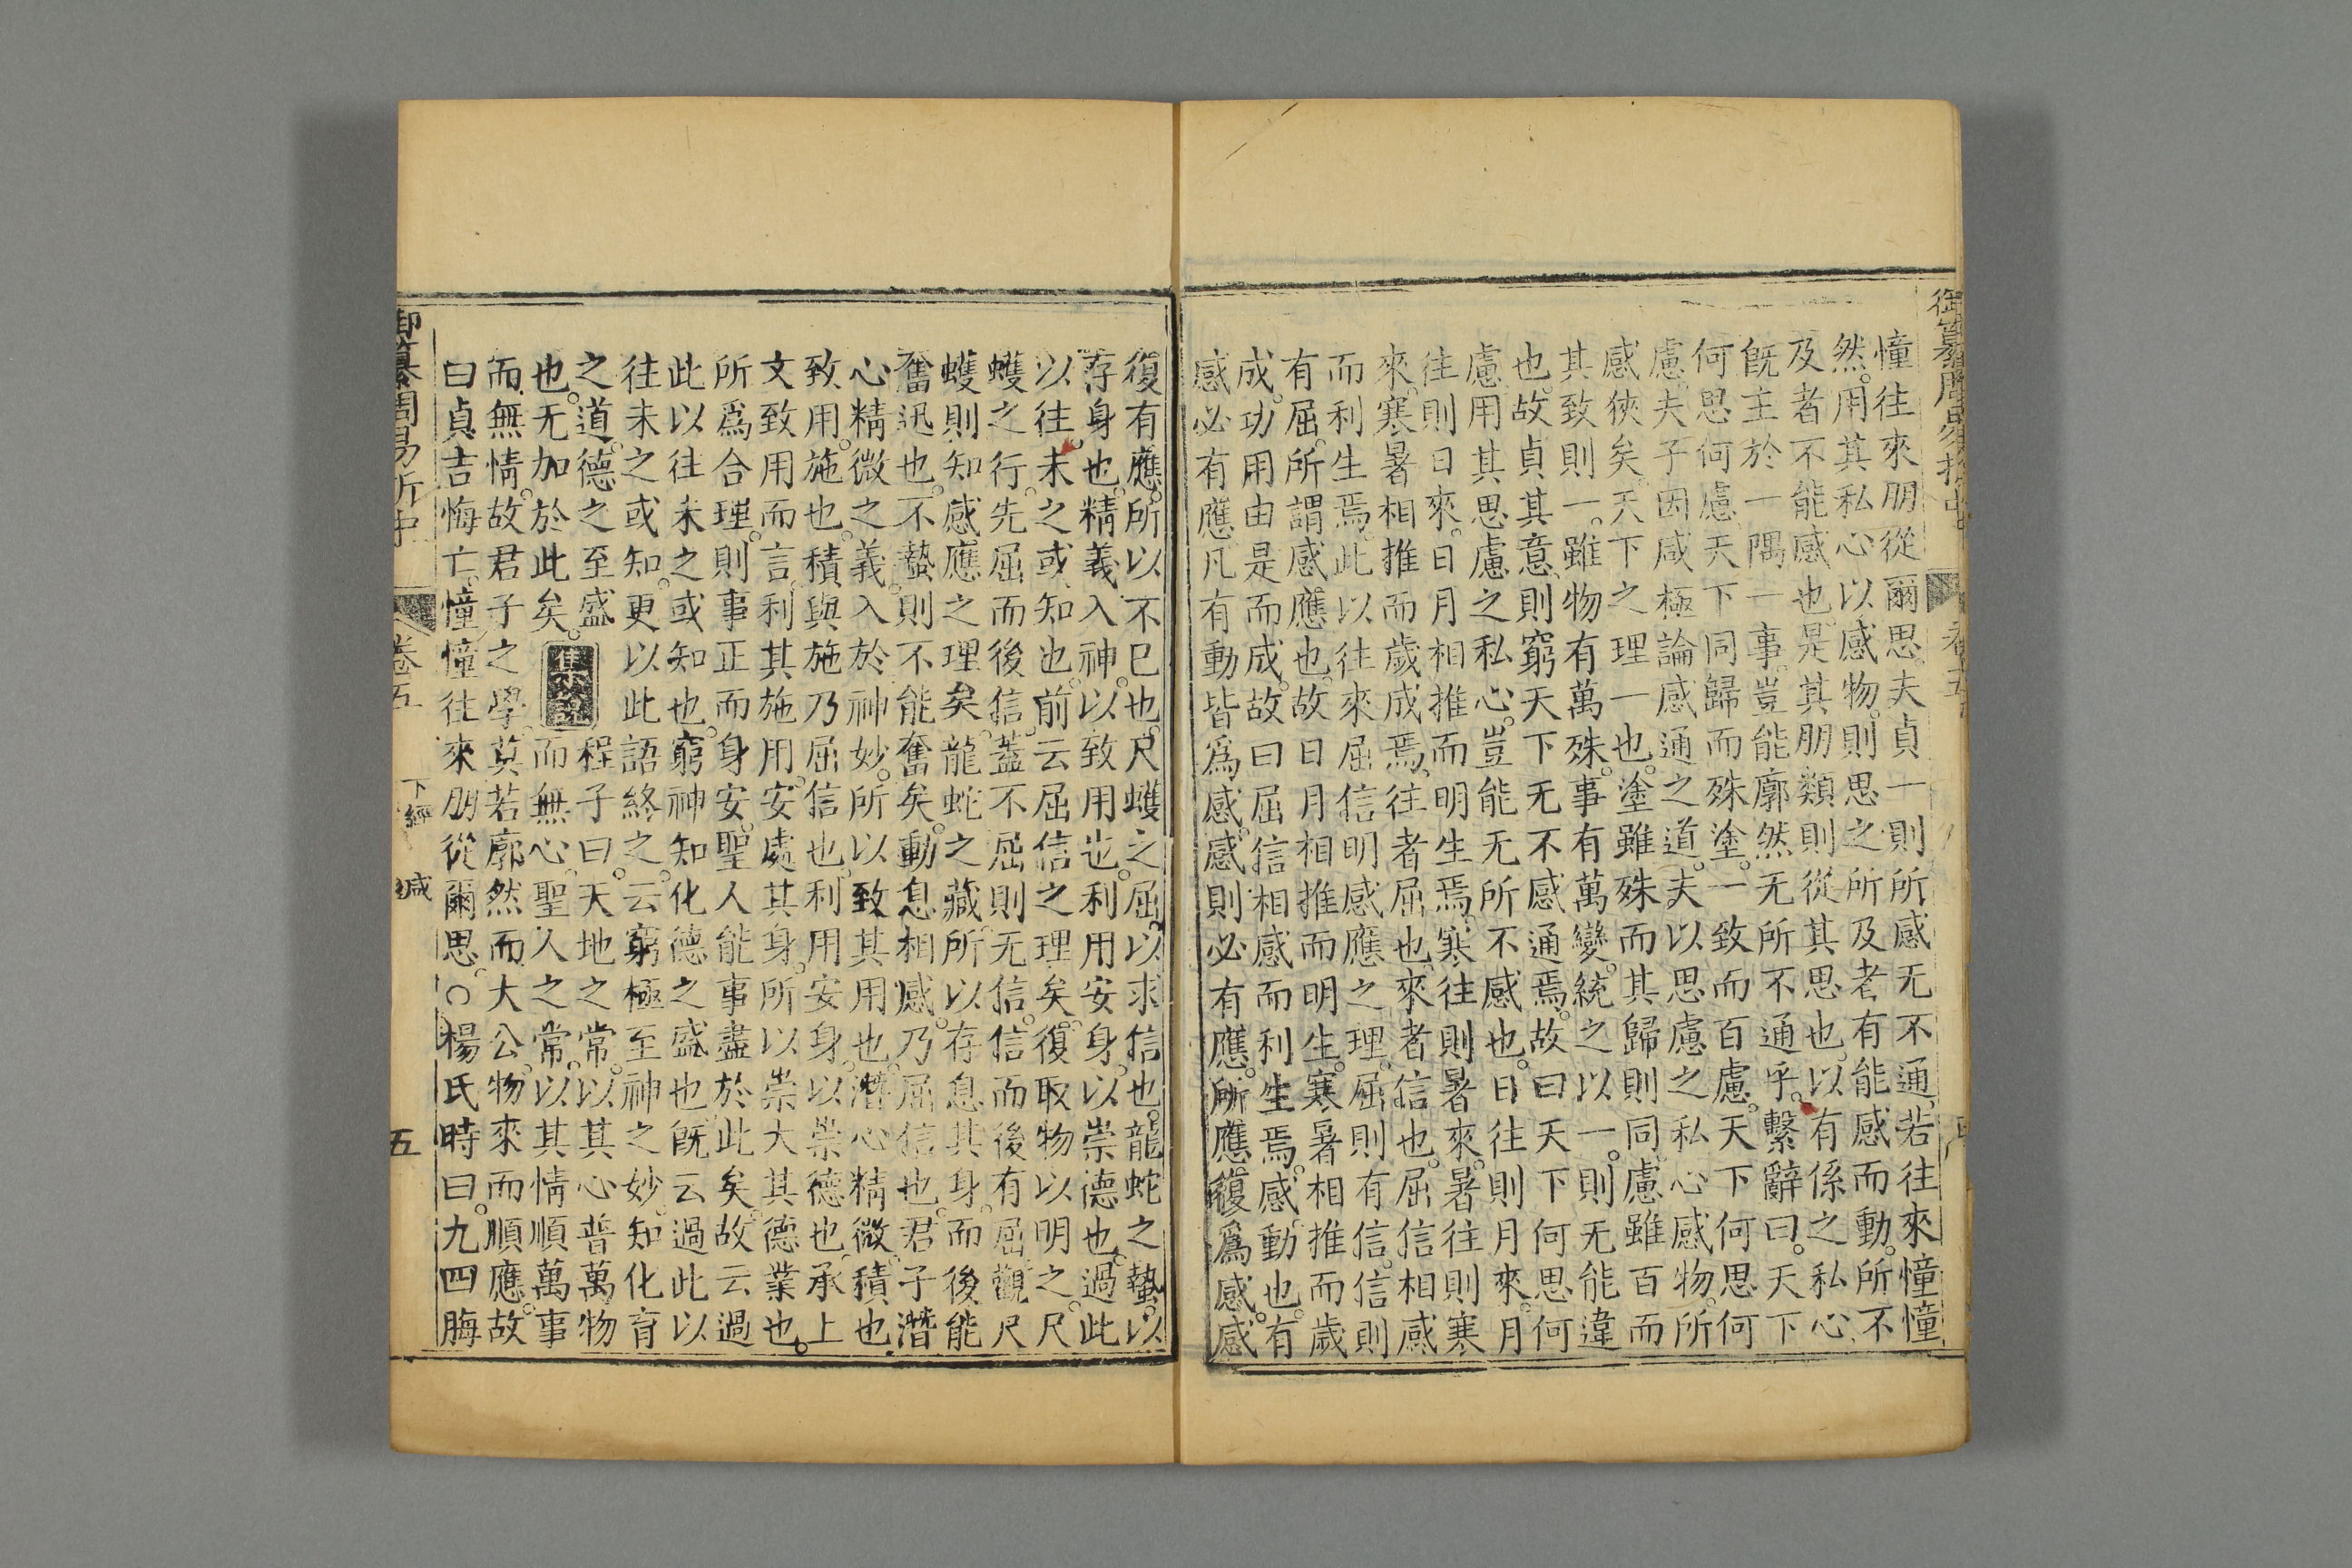 御纂周易折中
卷五
憧往來朋從爾思夫貞一則所感无不通若往來憧憧
然用其私心以感物則思之所及者有能感而動所不
及者不能感也是其朋類則從其思也以有係之私心
旣主於一隅一事豈能廓然无所不通乎繫辭曰天下
何思何慮天下同歸而殊塗一致而百慮天下何思何
慮夫子因咸極論感通之道夫以思慮之私心感物所
感狹矣天下之理一也塗雖殊而其歸則同慮雖百而
其致則一雖物有萬殊事有萬變統之以一則无能違
也故貞其意則窮天下无不感通焉故曰天下何思何
慮用其思慮之私心豈能无所不感也日往則月來月
往則日來日月相推而明生焉寒往則暑來暑往則寒
來寒暑相推而歲成焉往者屈也來者信也屈信相感
而利生焉此以往來屈信明感應之理屈則有信信則
有屈所謂感應也故日月相推而明生寒暑相推而歲
成功用由是而成故曰屈信相感而利生焉感動也有
感必有應凡有動皆爲感感則必有應所應復爲感感
復有應所以不已也尺蠖之屈以求信也龍蛇之蟄以
存身也精義入神以致用也利用安身以崇德也過此
以往未之或知也前云屈信之理矣復取物以明之尺
蠖之行先屈而後信蓋不屈則无信信而後有屈觀尺
蠖則知感應之理矣龍蛇之藏所以存息其身而後能
奮迅也不蟄則不能奮矣動息相感乃屈信也君子潛
心精微之義入於神妙所以致其用也潛心精微積也
致用施也積與施乃屈信也利用安身以崇德也承上
文致用而言利其施用安處其身所以崇大其德業也
所爲合理則事正而身安聖人能事盡於此矣故云過
此以往未之或知也窮神知化德之盛也旣云過此以
往未之或知更以此語終之云窮極至神之妙知化育
之道德之至盛也无加於此矣
集說
程子曰天地之常以其心普萬物
而無心聖人之常以其情順萬事
而無情故君子之學莫若廓然而大公物來而順應故
曰貞吉悔亡憧憧往來朋從爾思○楊氏時曰九四脢
御纂周易折中
卷五
下經
咸
五